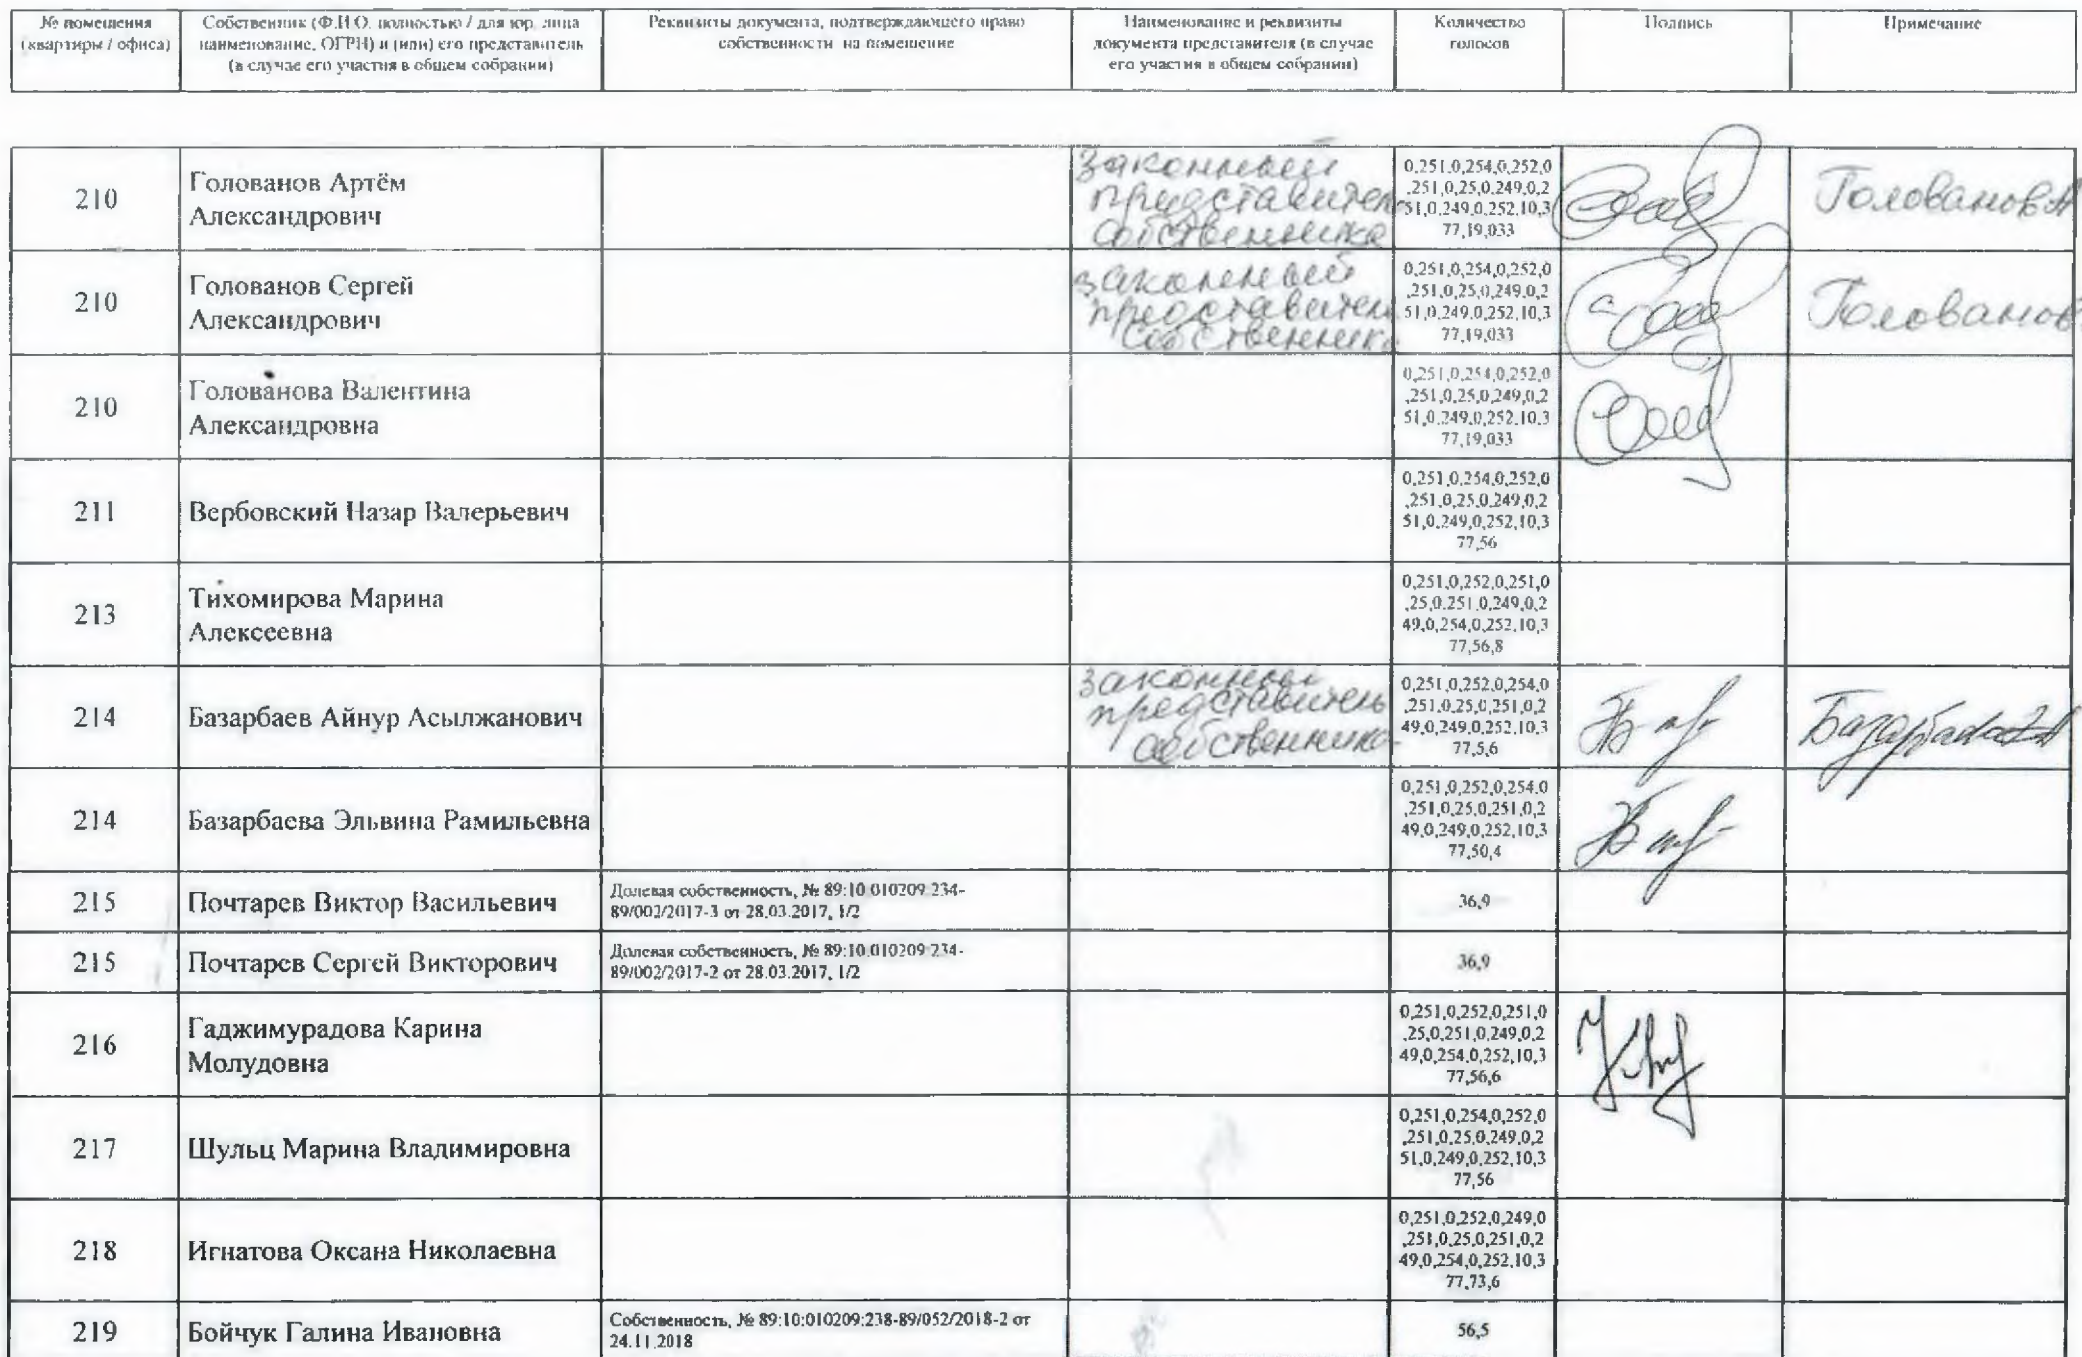 № помещения
(квартиры / офиса)
Собственник (Ф.И.О. полностью / для юр. лица
наименование, ОГРН) и (или) его представитель
(в случае его участия в общем собрании)
Реквизиты документа, подтверждающего право
собственности на помещение
Наименование и реквизиты
документа представителя (в случае
его участия в общем собрании)
Количество
голосов
Подпись
Примечание
210
Голованов Артём
Александрович
законный
представител
собственника
0,251,0,254,0,252,0
,251,0,25,0,249,0,2
51,0,249,0,252,10,3
77,19,033
Голованов А
210
Голованов Сергей
Александрович
законный
представител
собственник
0,251,0,254,0,252,0
,251,0,25,0,249,0,2
51,0,249,0,252,10,3
77,19,033
Голованов
210
Голованова Валентина
Александровна
0,251,0,254,0,252,0
,251,0,25,0,249,0,2
51,0,249,0,252,10,3
77,19,033
211
Вербовский Назар Валерьевич
0,251,0,254,0,252,0
,251,0,25,0,249,0,2
51,0,249,0,252,10,3
77,56
213
Тихомирова Марина
Алексеевна
0,251,0,252,0,251,0
,25,0,251,0,249,0,2
49,0,254,0,252,10,3
77,56,8
214
Базарбаев Айнур Асылжанович
законный
представитель
собственника
0,251,0,252,0,254,0
,251,0,25,0,251,0,2
49,0,249,0,252,10,3
77,5,6
214
Базарбаева Эльвина Рамильевна
0,251,0,252,0,254,0
,251,0,25,0,251,0,2
49,0,249,0,252,10,3
77,50,4
215
Почтарев Виктор Васильевич
Долевая собственность, № 89:10:010209:234-
89/002/2017-3 от 28.03.2017, 1/2
36,9
215
Почтарев Сергей Викторович
Долевая собственность, № 89:10:010209:234-
89/002/2017-2 от 28.03.2017, 1/2
36,9
216
Гаджимурадова Карина
Молудовна
0,251,0,252,0,251,0
,25,0,251,0,249,0,2
49,0,254,0,252,10,3
77,56,6
217
Шульц Марина Владимировна
0,251,0,254,0,252,0
,251,0,25,0,249,0,2
51,0,249,0,252,10,3
77,56
218
Игнатова Оксана Николаевна
0,251,0,252,0,249,0
,251,0,25,0,251,0,2
49,0,254,0,252,10,3
77,73,6
219
Бойчук Галина Ивановна
Собственность, № 89:10:010209:238-89/052/2018-2 от
24.11.2018
56,5